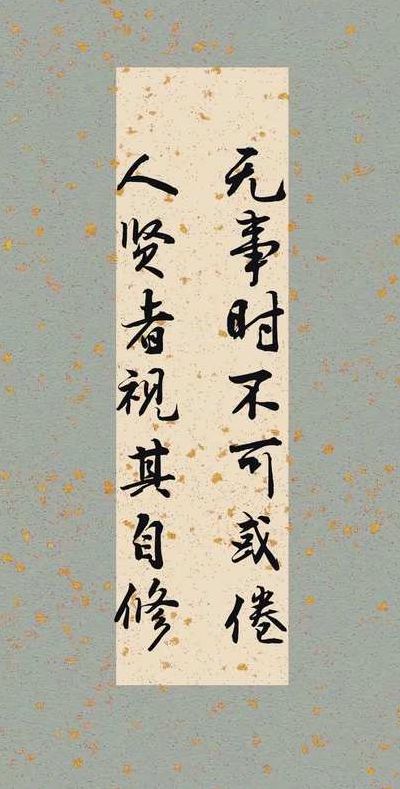 无事时不可或倦
人贤者视其自修